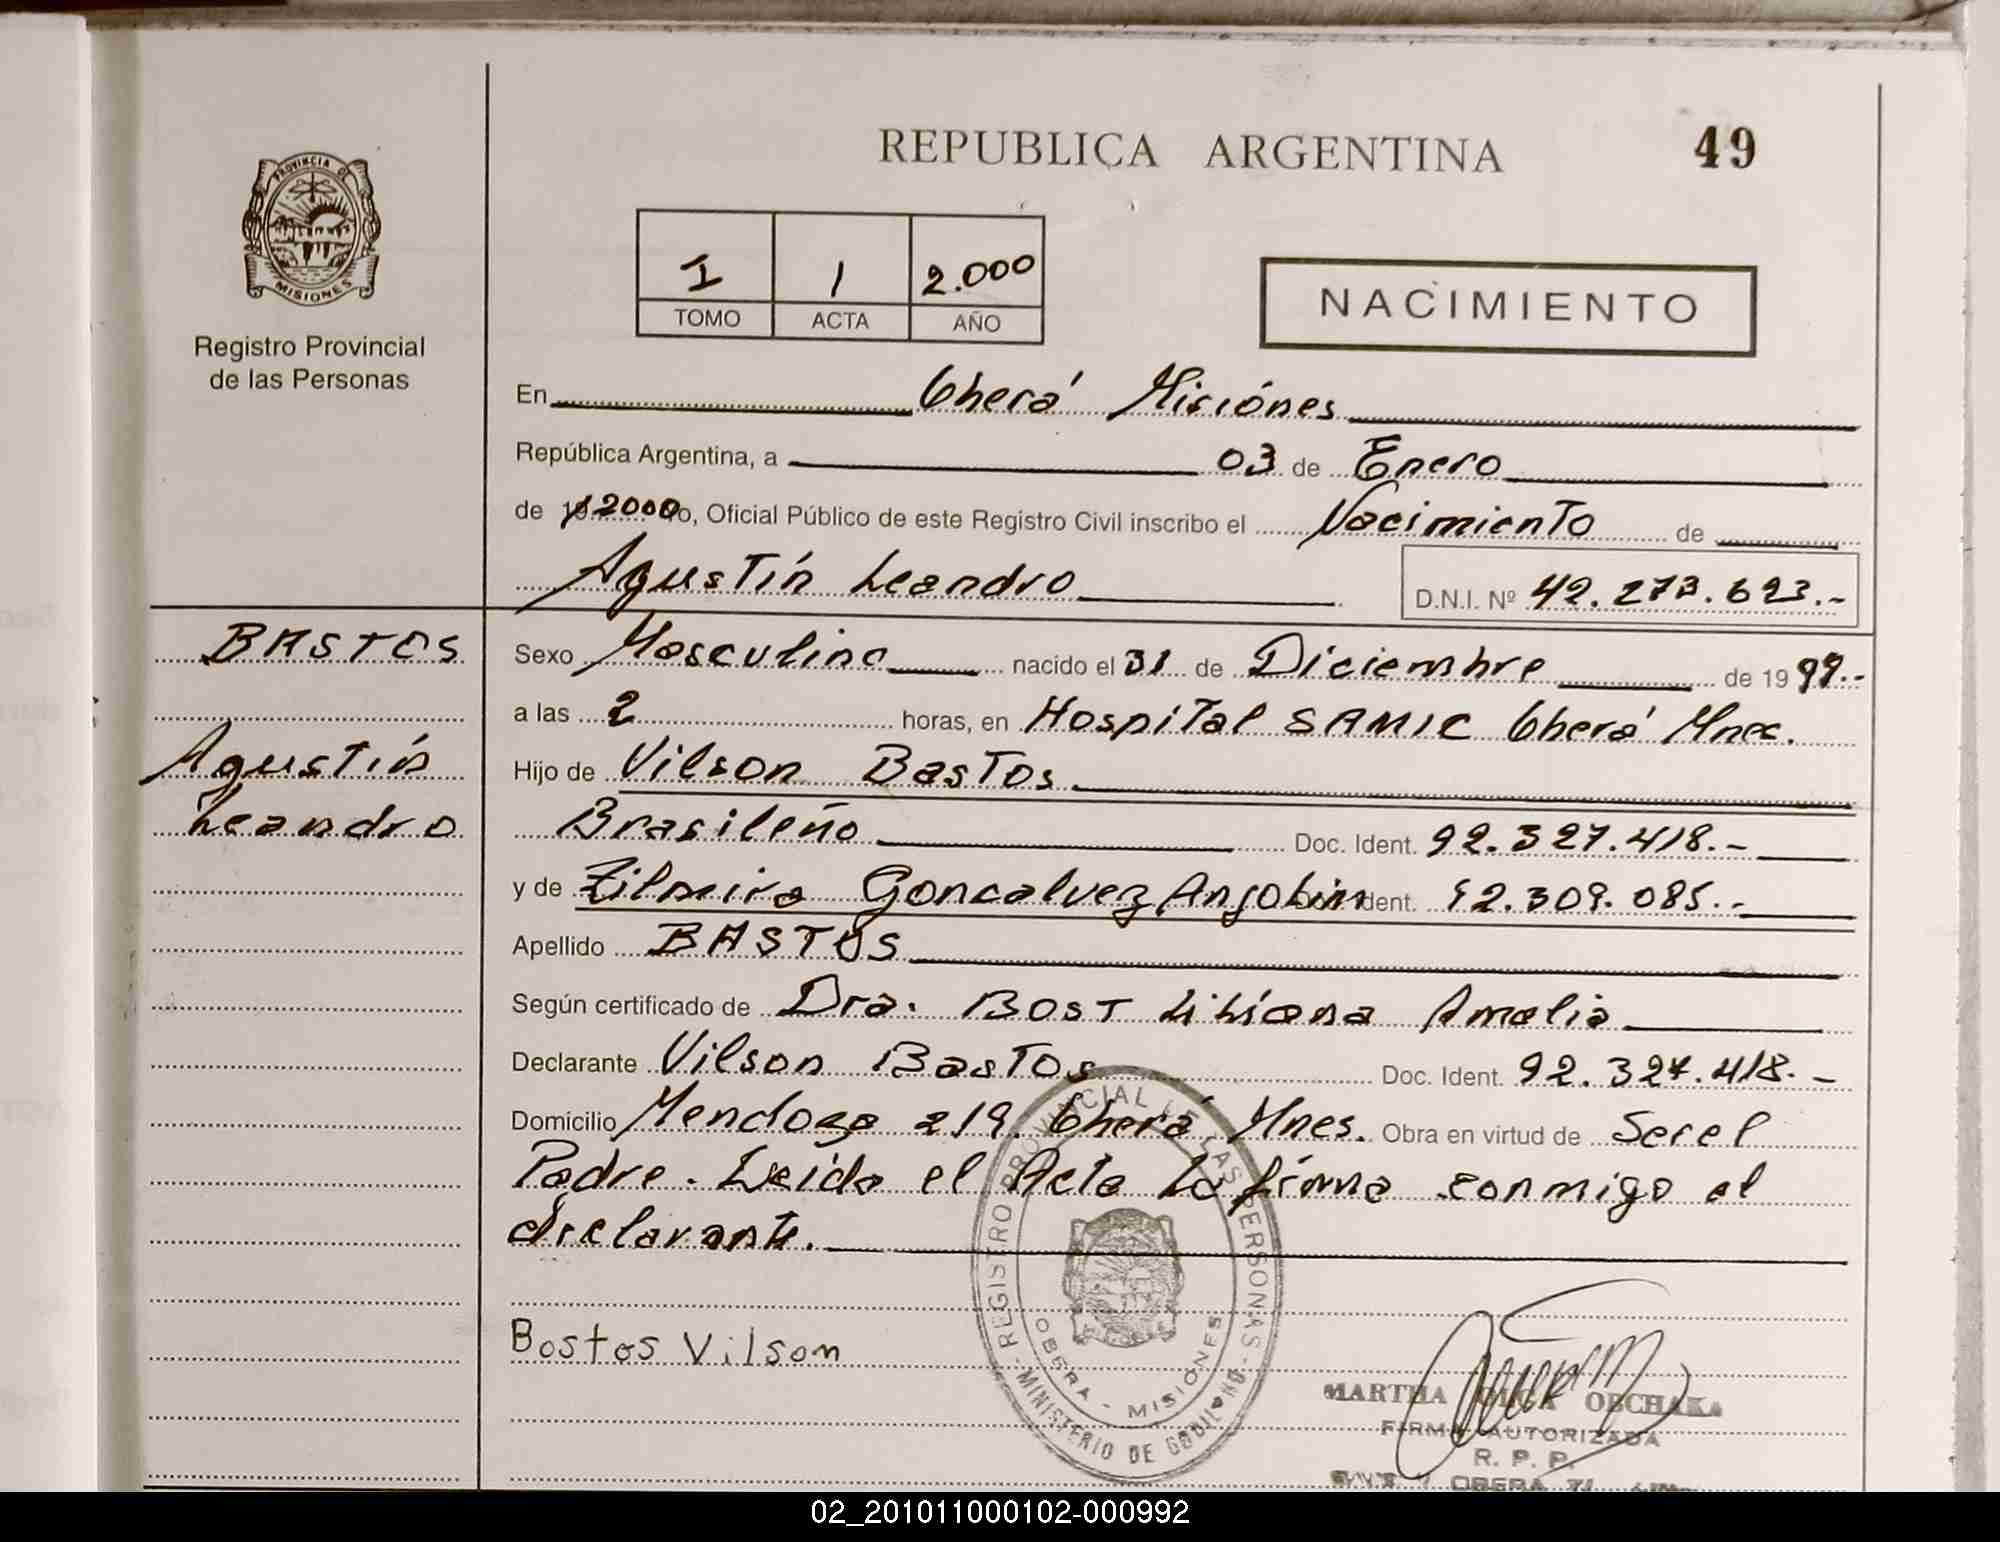 REPUBLICA ARGENTINA 49
PROVINCIA DE
MISIONES
Registro Provincial
de las Personas
I 1 2.000
TOMO ACTA AÑO
NACIMIENTO
En Oberá Misiónes
República Argentina, a 03 de Enero
de 19 2000 Yo, Oficial Público de este Registro Civil inscribo el Nacimiento de
Agustín Leandro D.N.I. Nº 42.273.693.-
BASTOS
Agustín
Leandro
Sexo Masculino nacido el 31 de Diciembre de 1999.-
a las 2 horas, en Hospital SAMIC Oberá Mnes.
Hijo de Vilson Bastos
Brasileño Doc. Ident. 92.327.418.-
y de Zilmira Goncalvez Anjolin Ident. 92.309.085.-
Apellido BASTOS
Según certificado de Dra. BOST Liliana Amalia
Declarante Vilson Bastos Doc. Ident. 92.327.418.-
Domicilio Mendoza 219. Oberá Mnes. Obra en virtud de Ser el
Padre. Leída el Acta la firma conmigo el
declarante.
Bostos Vilson
REGISTRO PROVINCIAL DE LAS PERSONAS
OBERA - MISIONES
MINISTERIO DE GOBIERNO
MARTHA OLGA OBCHAKA
FIRMA AUTORIZADA
R. P. P.
OBERA
02_201011000102-000992